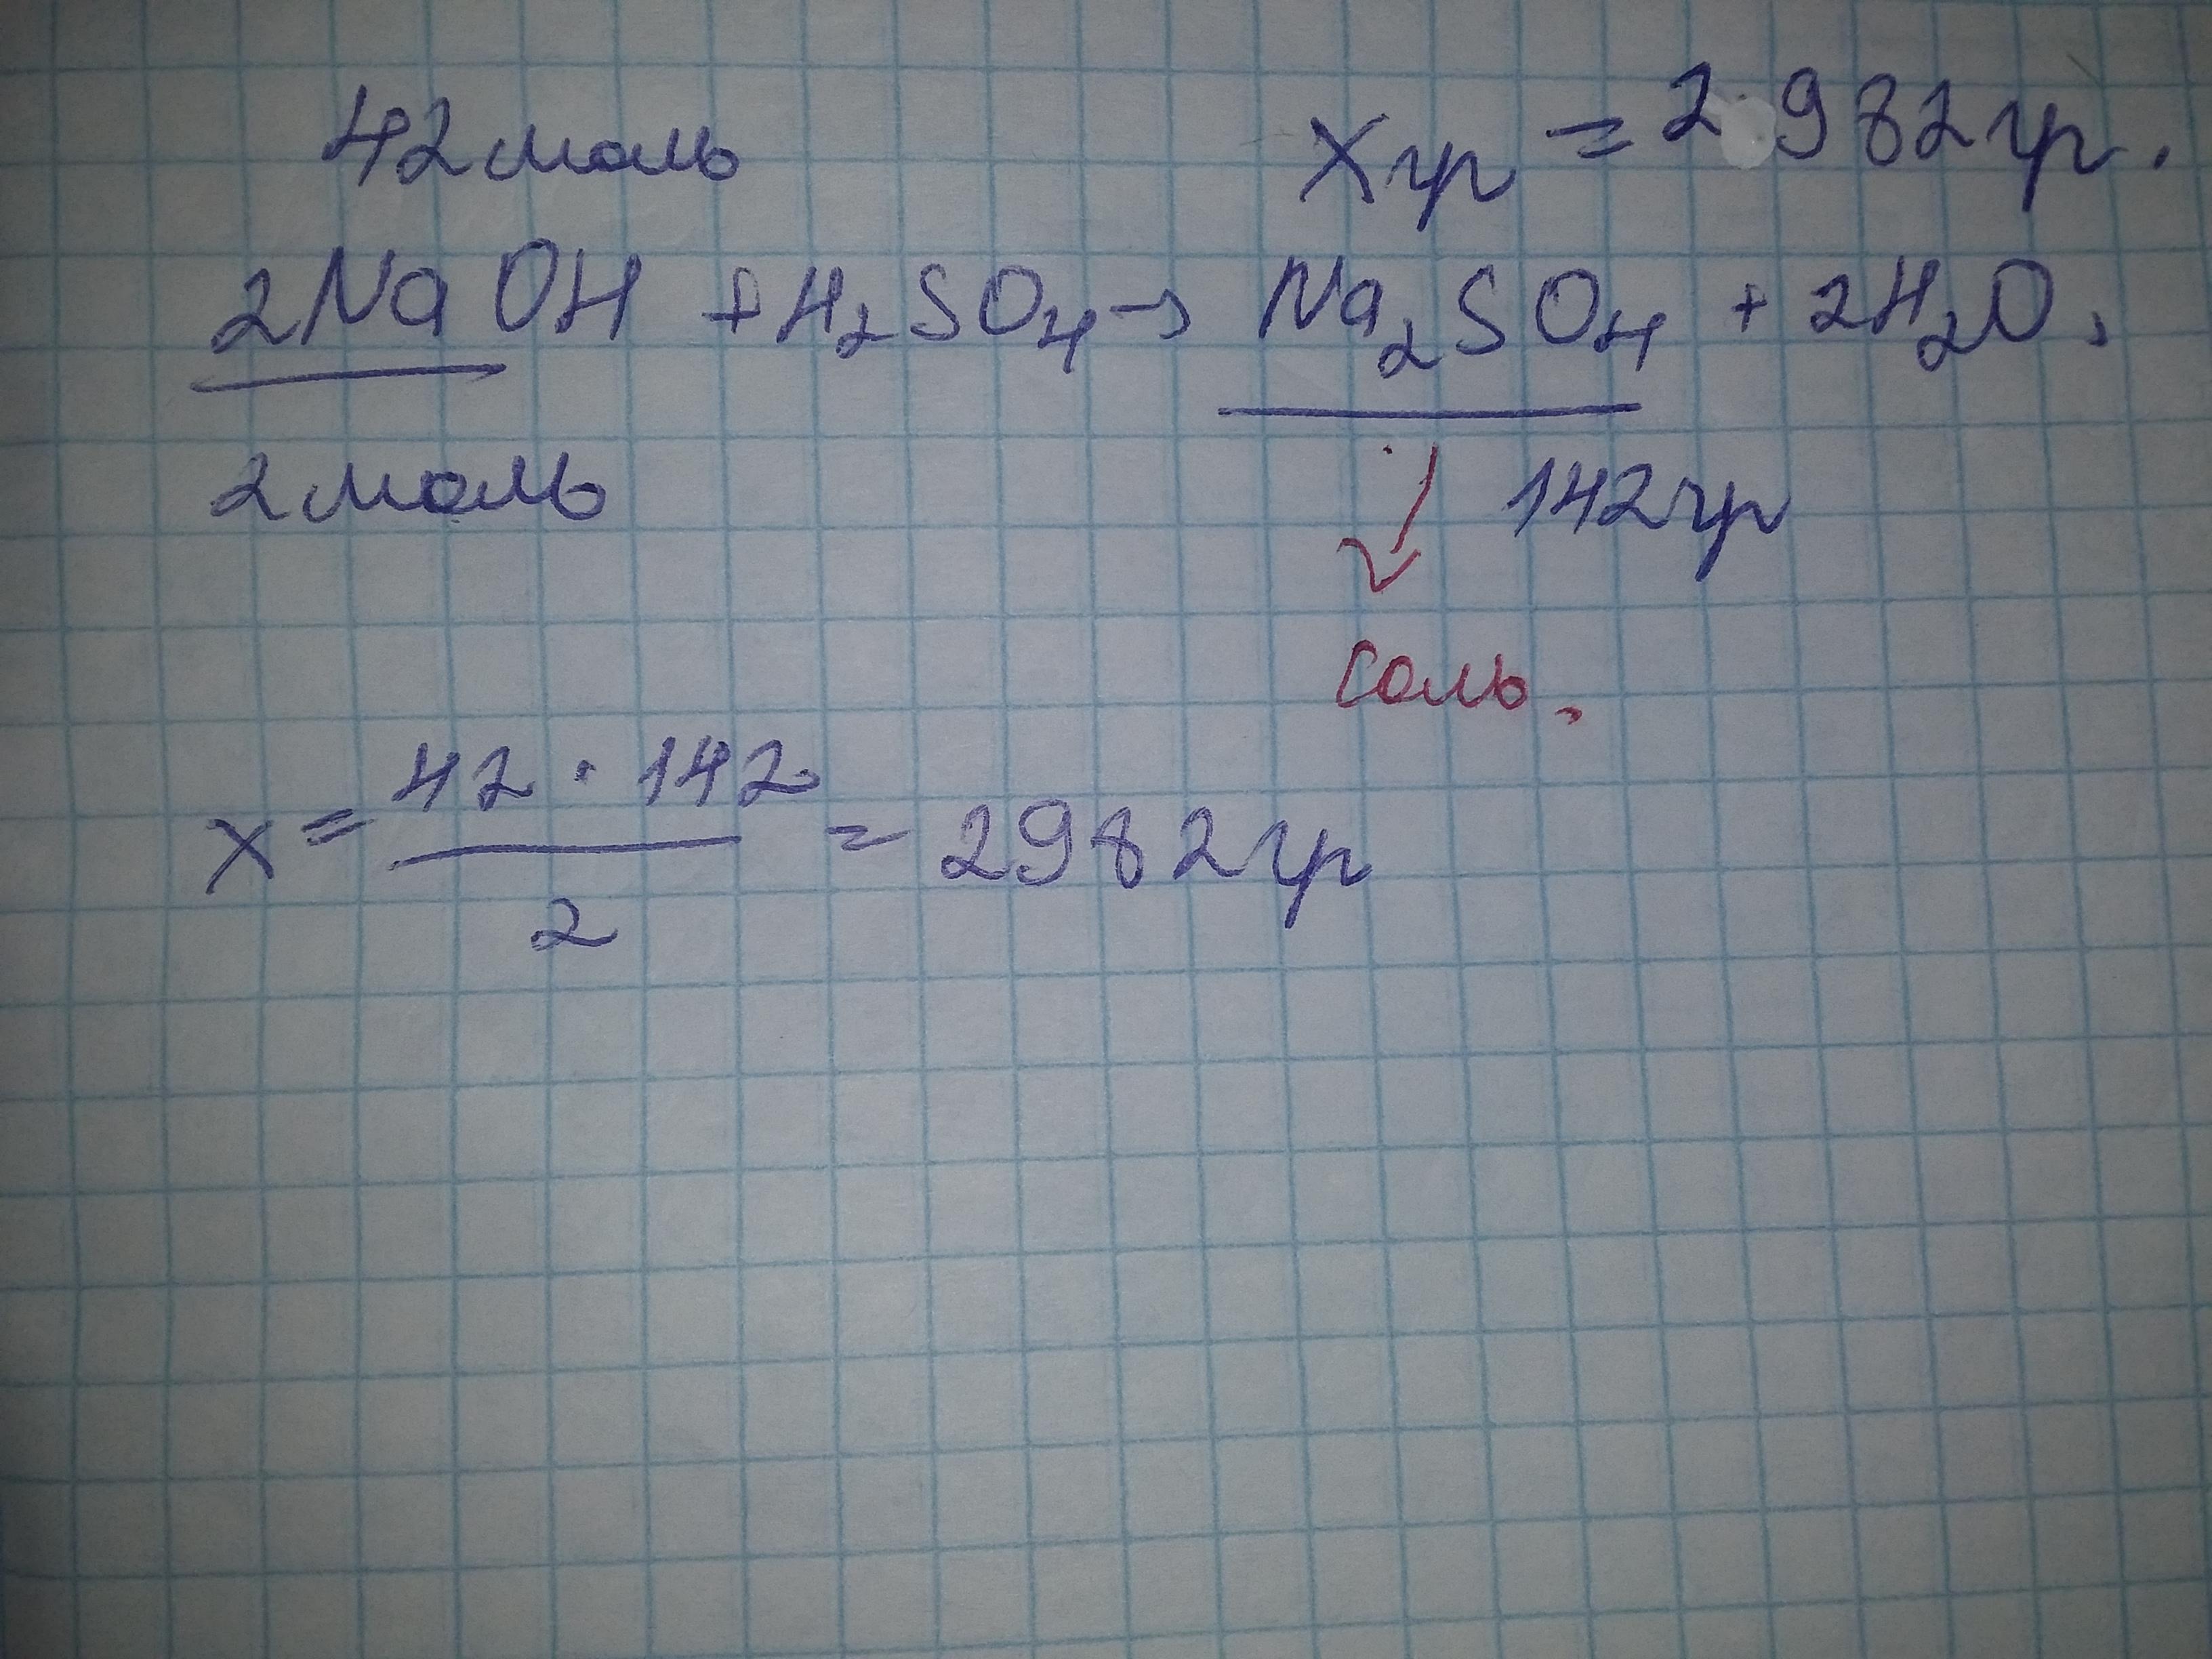 42моль        Xгр = 2982гр.
2NaOH + H₂SO₄ → Na₂SO₄ + 2H₂O,
2моль        142гр
соль.
x = 42 · 142 / 2 = 2982гр